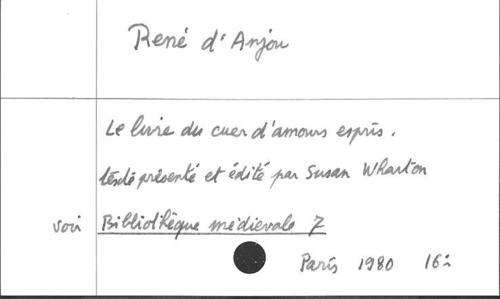 René d'Anjou
Le livre du cuer d'amours espris.
texte présenté et édité par Susan Wharton
voir Bibliothèque médievale 7
Paris 1980 16º